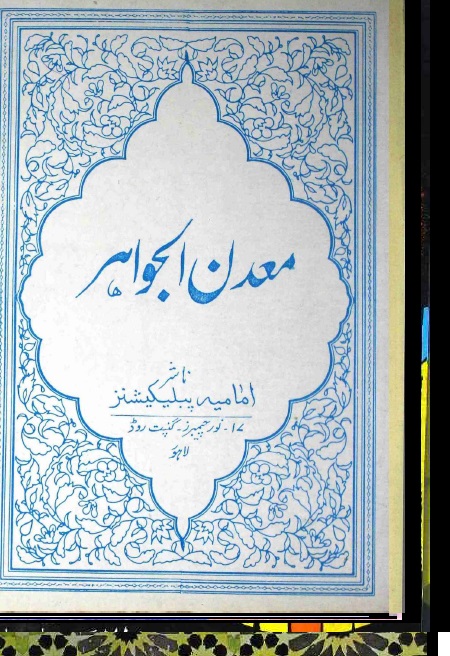 معدن الجواہر
ناشر
امامیہ پبلیکیشنز
۱۷- نور چیمبرز- گنپت روڈ
لاہور